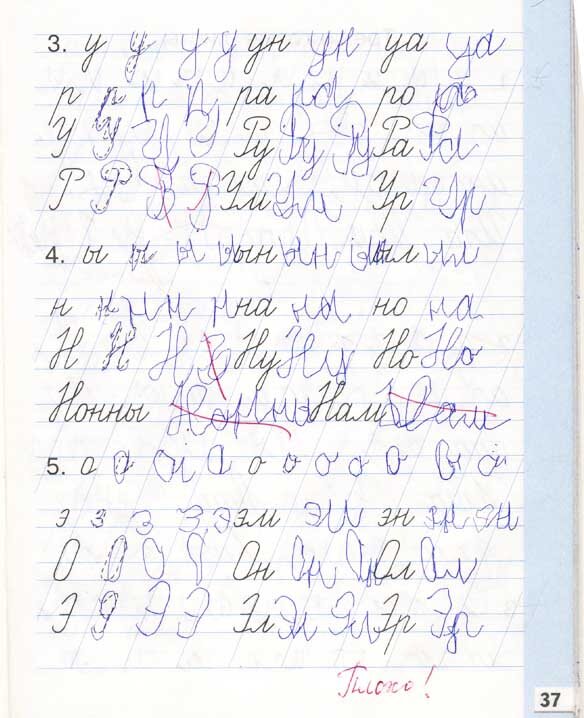 3. у у у у ун ун уа уа
р р р р ра ра ро ро
У У У У Ру Ру Ру Ра Ра
Р Р Р Р Ум Ум Ур Ур
4. ы ы ы ы ын ын ын ыл ыл
н н н н н на на но на
Н Н Н Ну Ну Но Но
Нонны Нонны Нам Нам
5. о о о о о о о о
э э э э э эм эм эн эн эн
О О О О Он Он Он Ол Ол
Э Э Э Э Эл Эл Эл Эр Эр
Плохо!
37